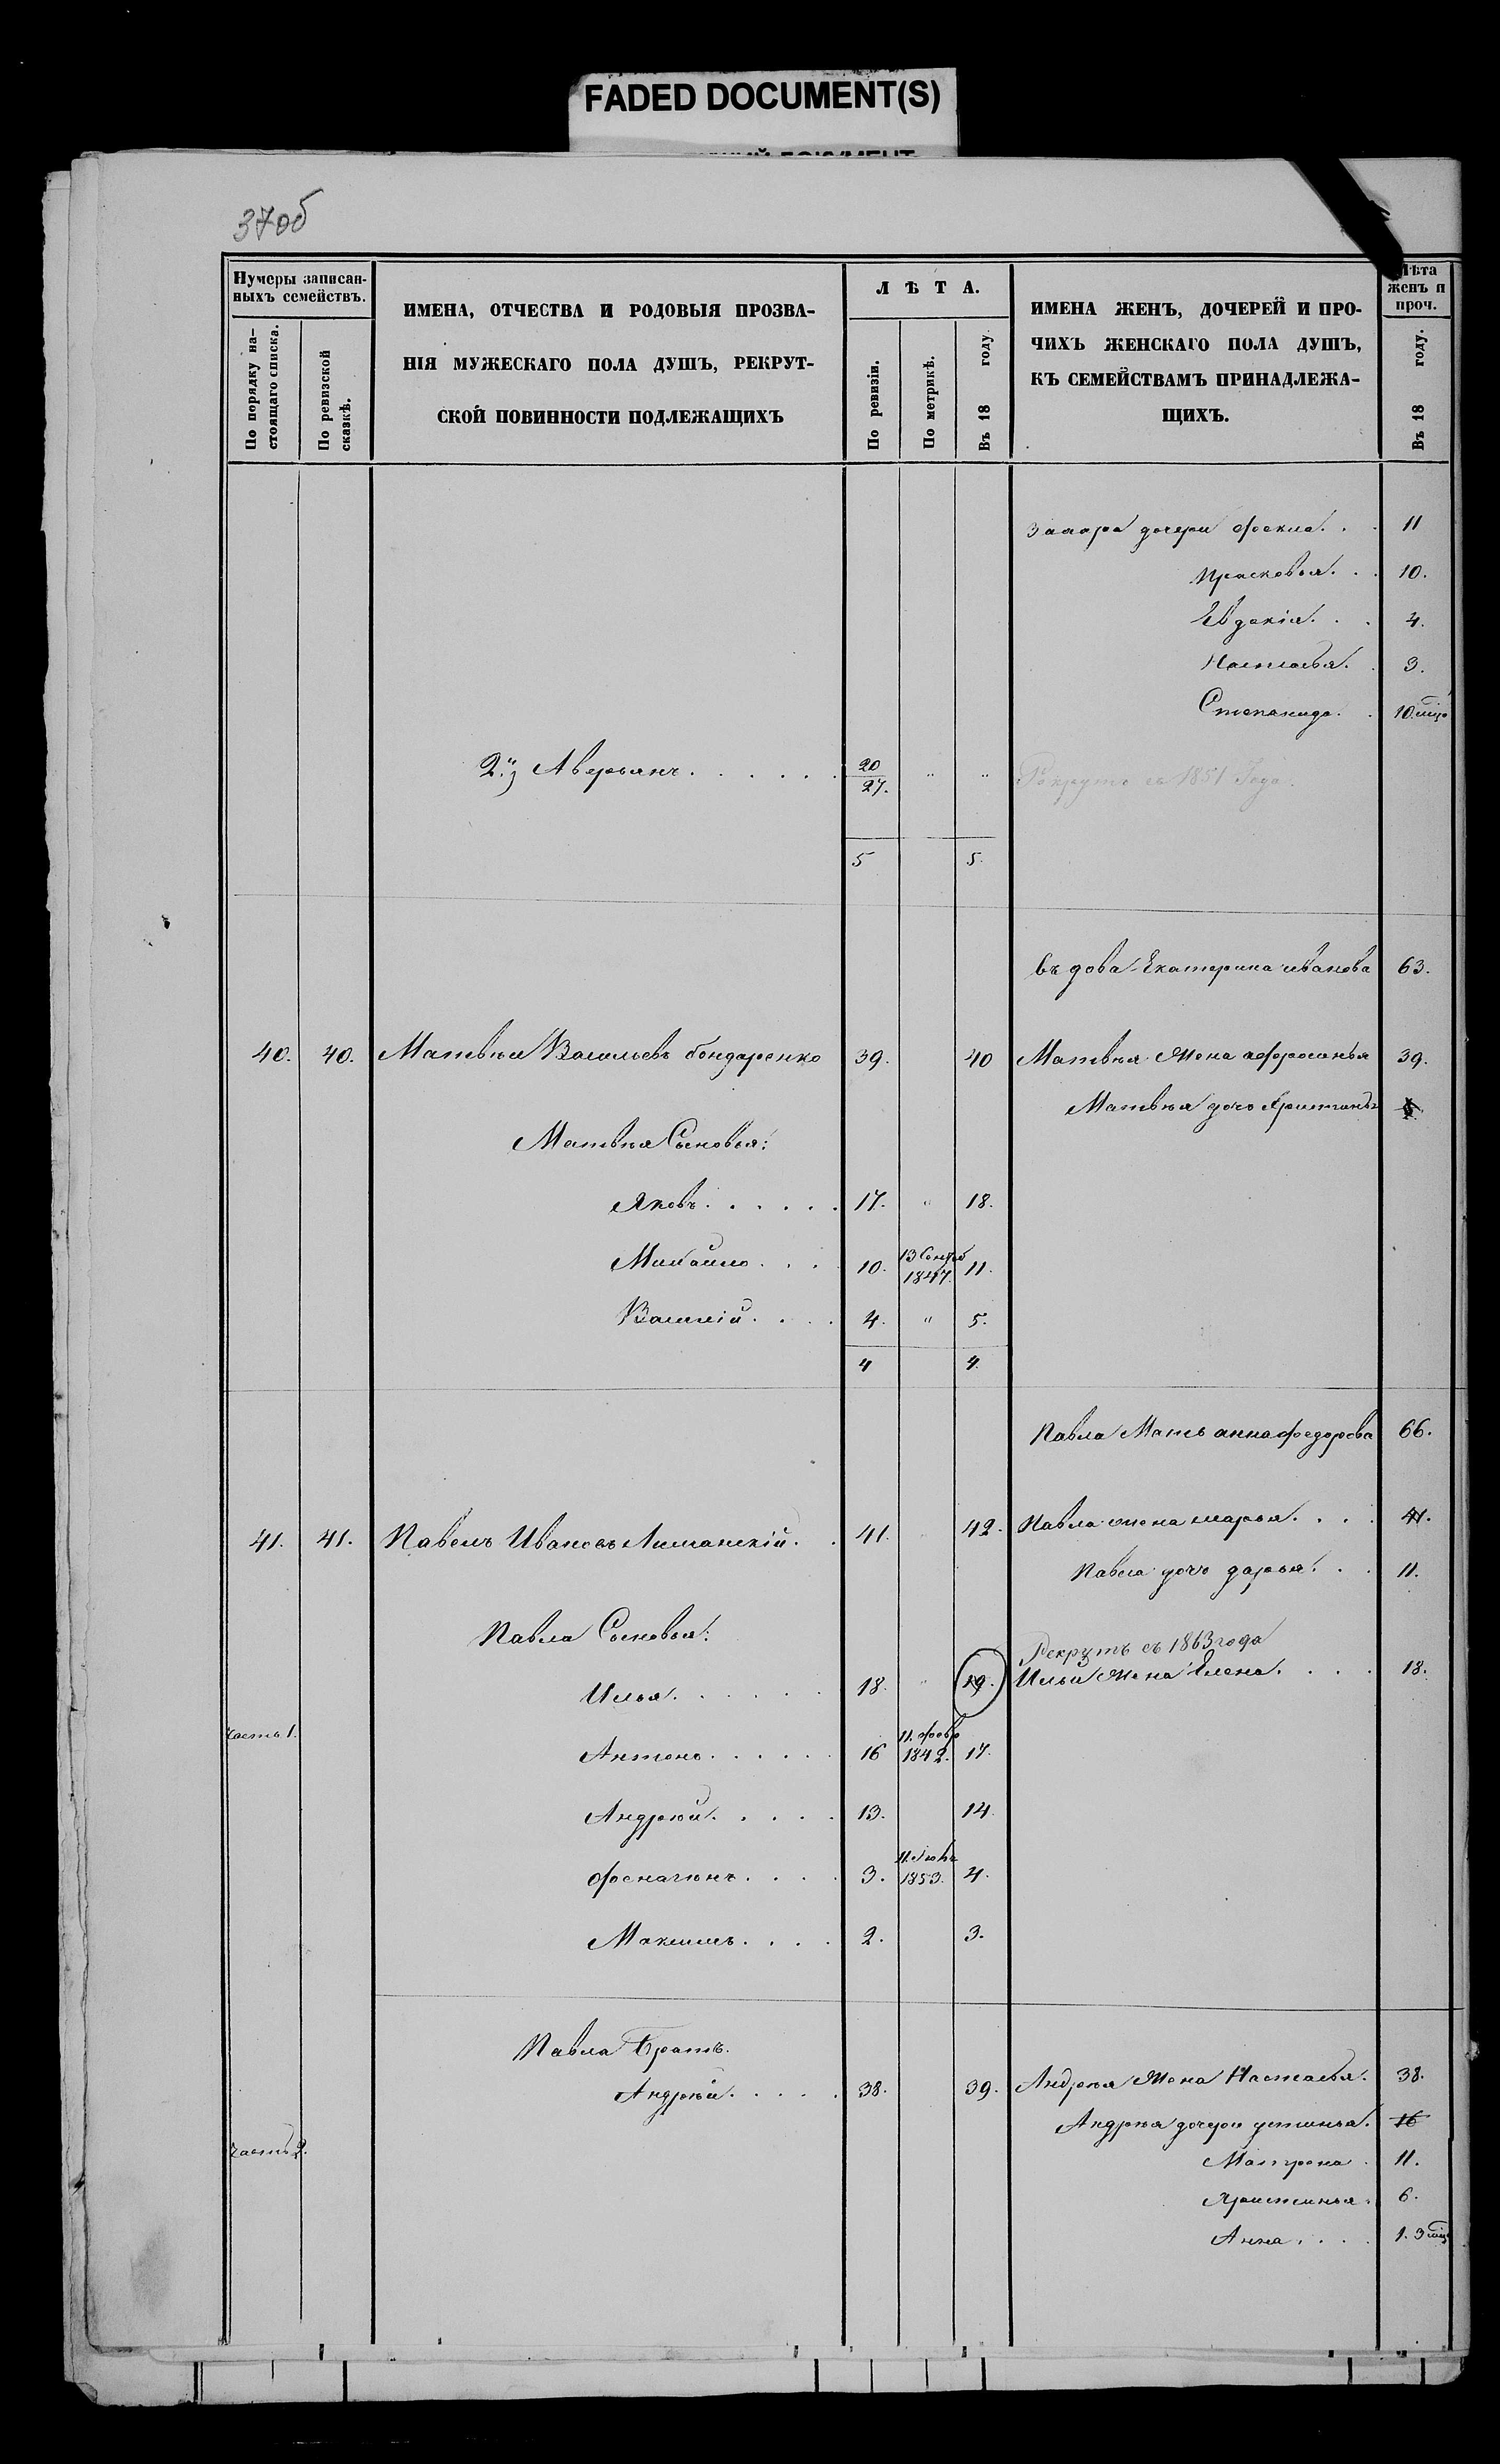 FADED DOCUMENT(S)
37об
Нумеры записан-
ныхъ семействъ.
По порядку на-
стоящаго списка.
По ревизской
сказкѣ.
ИМЕНА, ОТЧЕСТВА И РОДОВЫЯ ПРОЗВА-
НІЯ МУЖЕСКАГО ПОЛА ДУШЪ, РЕКРУТ-
СКОЙ ПОВИННОСТИ ПОДЛЕЖАЩИХЪ
ЛѢТА.
По ревизіи.
По метрикѣ.
Въ 18 году.
ИМЕНА ЖЕНЪ, ДОЧЕРЕЙ И ПРО-
ЧИХЪ ЖЕНСКАГО ПОЛА ДУШЪ,
КЪ СЕМЕЙСТВАМЪ ПРИНАДЛЕЖА-
ЩИХЪ.
Лѣта
женъ и
проч.
Въ 18 году.
дочери Фекла . . 11
Прасковья . . 10.
Евдокія . . 4.
Настасья . 3.
Степанида . . 10 мцо
2й Аверьянъ . . . . . . 20 " " Рекрутъ съ 1851 Года.
27.
5 5.
въдова Екатерина иванова 63.
40. 40. Матвѣй Васильевъ бондаренко 39. 40 Матвѣя Жена афросинья 39.
Матвѣя дочь Христинья
Матвѣя Сыновья:
Яковъ . . . . . . 17. " 18.
Михайло . . . 10. 13 Сентяб 1847. 11.
Василій . . . . 4. " 5.
4 4.
Павла Мать анна федорова 66.
41. 41. Павелъ Ивановъ Лиманскій . . 41. 42. Павла жена марья . . . . 41.
Павла дочь дарья . . . 11.
Павла Сыновья:
Рекрутъ съ 1863 года
Илья . . . . . . 18. " 19. Ильи Жена Елена . . . . 18.
часть 1.
Антонъ . . . . . . 16 11. февр 1842. 17.
Андрѣй . . . . . 13. 14.
. . . . 3. 11. 1853. 4.
Максимъ . . . . 2. 3.
Павла Братъ.
Андрѣй . . . . . 38. 39. Андрѣя Жена Настасья. 38.
Андрѣя дочери устинья. 16
часть 2.
Матрона . 11.
Христинья . 6.
Анна . . . . 1. 3 мцо